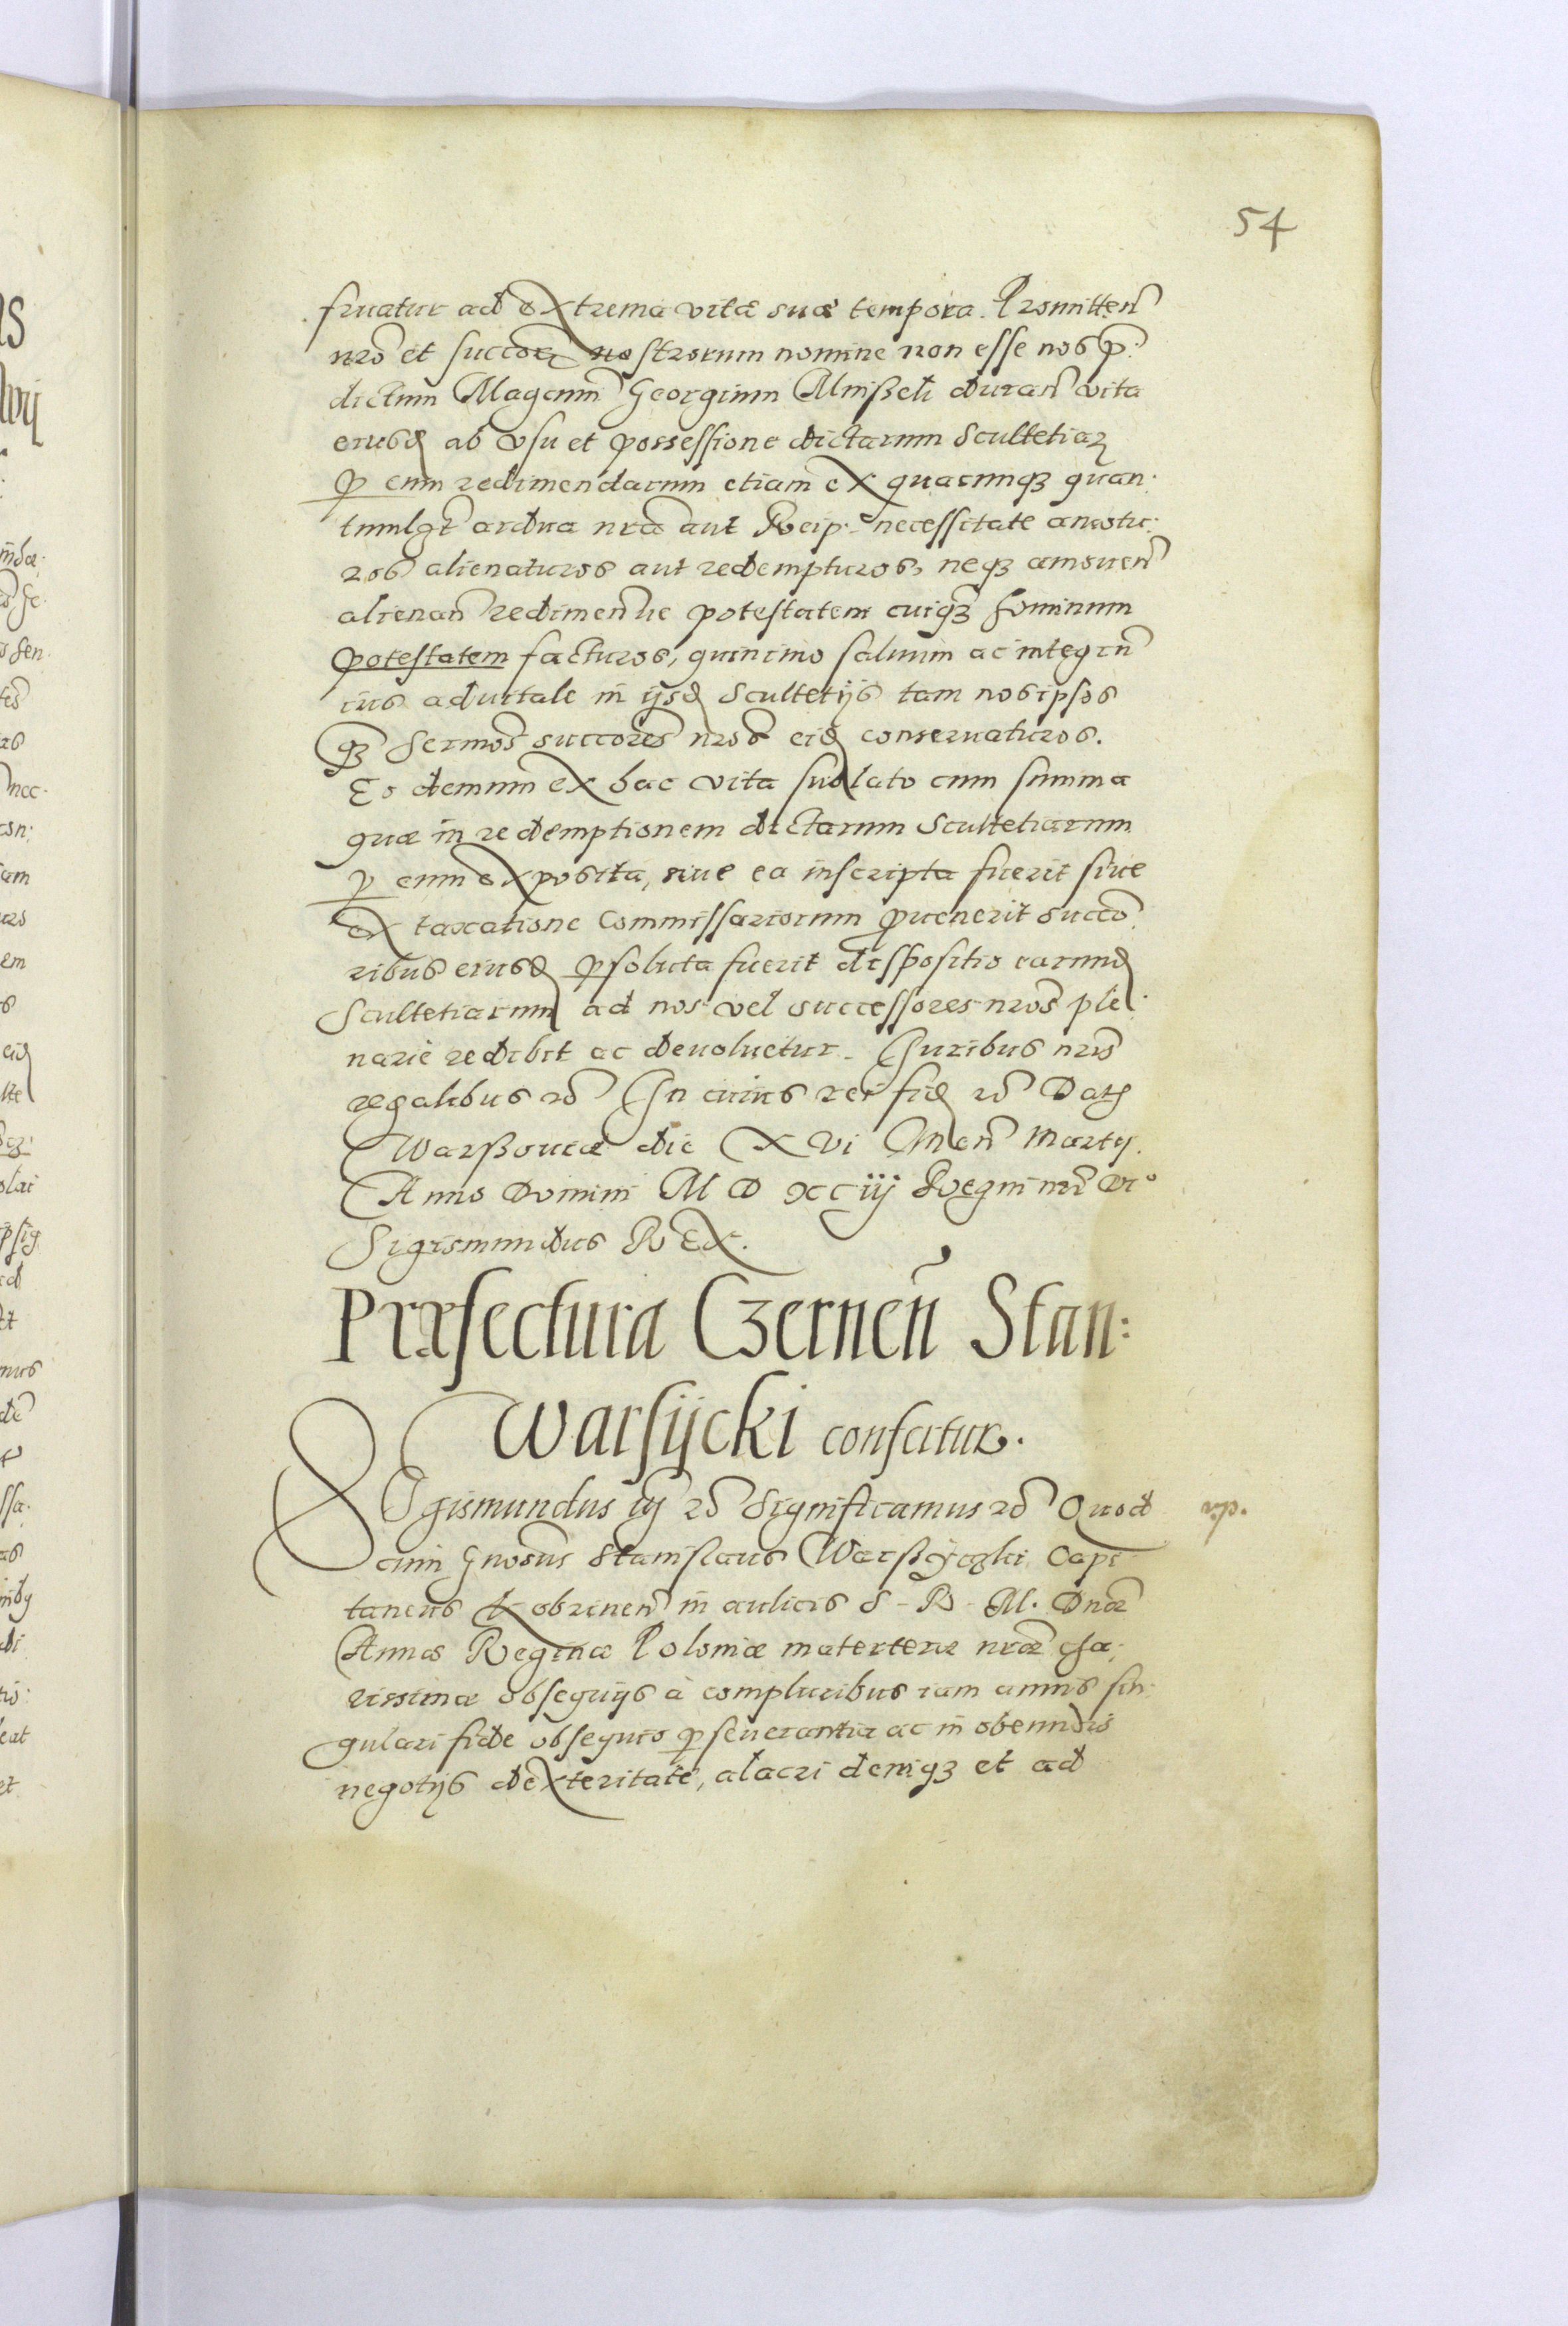 54
fruatur ad extrema vitæ suæ tempora. Promitten̄
nrō et succor̄ nostrorum nomine non esse nos p̄
dictum Magcum̄ Georgium Mnißeh duran̄ vita
eiusd ab vsu et possessione dictarum Scultetiar
p eum redimendarum etiam ex quacunqȝ quan-
tumlgt̄ ardua nrā aut Reip. necessitate amotu-
ros alienaturos aut redempturos, neqȝ amouen̄
alienan̄ redimen̄ue potestatem cuiqȝ hominum
potestatem facturos, quinimo saluum ac integrū
ius aduitale in ijsd Scultetijs tam nos ipsos
qȝ Sermōs succorēs nrōs eid conseruaturos.
Eo demum ex hac vita sublato cum summa
quæ in redemptionem dictarum Scultetiarum
p eum exposita, siue ea inscripta fuerit siue
ex taxatione Commissariorum puenerit succo-
ribus eiusd psoluta fuerit dispositio earund
Scultetiarum ad nos vel successores nrōs ple-
narie redibit ac deuoluetur. Iuribus nrīs
regalibus rō In cuius rei fid rō Dat
Warßouiæ die XVI Men̄ Martij.
Anno Domini M D XCiij Regni nrī Vi°
Sigismundus REX.
Præfectura Czernen̄ Stan:
Warsijcki confertur.
SIgismundus iij rō Significamus rō Quod
cum Gnosūs Stanislaus Warßijczki Capi-
taneus Kobrinen̄ in aulicis S. R. M. Dnǣ
Annæ Reginæ Poloniæ materteræ nrǣ cha-
rissimæ obsequijs à compluribus iam annis sin-
gulari fide obsequio pseuerantia ac in obeundis
negotijs dexteritate, alacri deniqȝ et ad